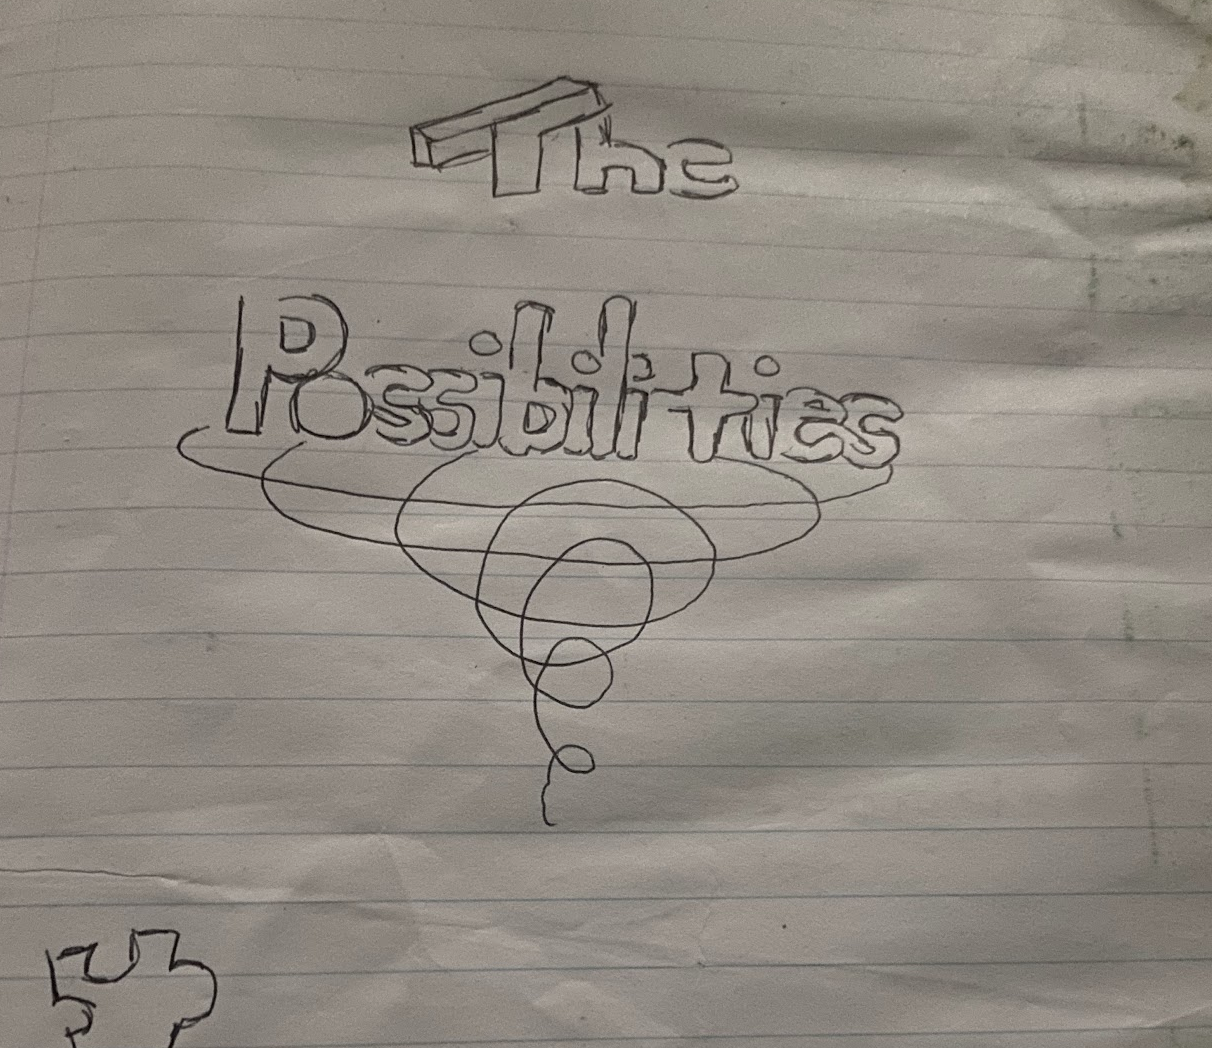 The
Possibilities